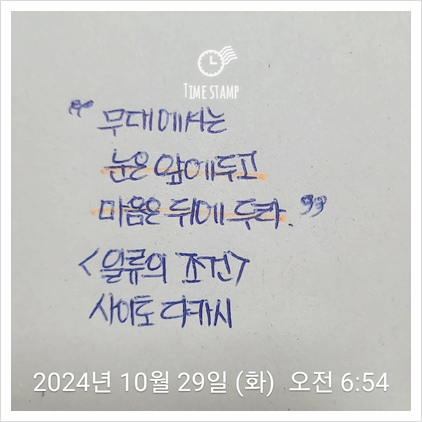 TIME STAMP
“ 무대에서는
눈은 앞에 두고
마음은 뒤에 두라. ”
<일류의 조건>
사이토 다카시
2024년 10월 29일 (화) 오전 6:54